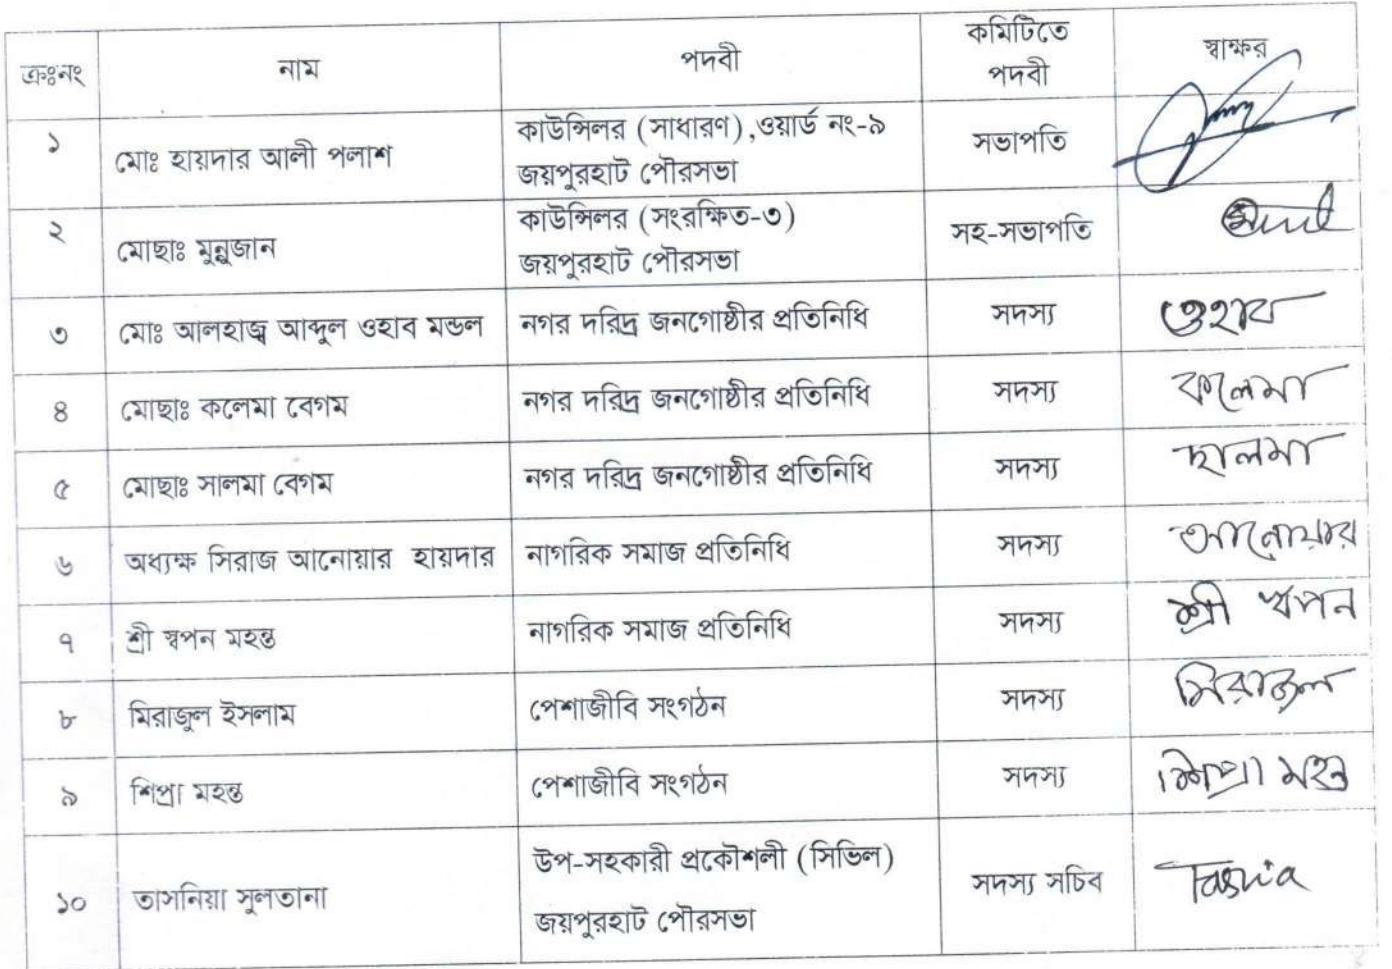 ক্রঃনং নাম পদবী কমিটিতে পদবী স্বাক্ষর
১ মোঃ হায়দার আলী পলাশ কাউন্সিলর (সাধারণ),ওয়ার্ড নং-৯ জয়পুরহাট পৌরসভা সভাপতি
২ মোছাঃ মুন্নুজান কাউন্সিলর (সংরক্ষিত-৩) জয়পুরহাট পৌরসভা সহ-সভাপতি
৩ মোঃ আলহাজ্ব আব্দুল ওহাব মন্ডল নগর দরিদ্র জনগোষ্ঠীর প্রতিনিধি সদস্য ওহাব
৪ মোছাঃ কলেমা বেগম নগর দরিদ্র জনগোষ্ঠীর প্রতিনিধি সদস্য কলেমা
৫ মোছাঃ সালমা বেগম নগর দরিদ্র জনগোষ্ঠীর প্রতিনিধি সদস্য ছালমা
৬ অধ্যক্ষ সিরাজ আনোয়ার হায়দার নাগরিক সমাজ প্রতিনিধি সদস্য আনোয়ার
৭ শ্রী স্বপন মহন্ত নাগরিক সমাজ প্রতিনিধি সদস্য শ্রী স্বপন
৮ মিরাজুল ইসলাম পেশাজীবি সংগঠন সদস্য মিরাজুল
৯ শিপ্রা মহন্ত পেশাজীবি সংগঠন সদস্য শিপ্রা মহন্ত
১০ তাসনিয়া সুলতানা উপ-সহকারী প্রকৌশলী (সিভিল) জয়পুরহাট পৌরসভা সদস্য সচিব Tasnia